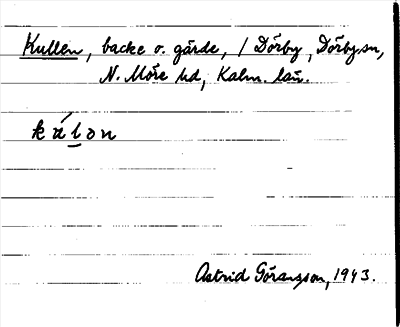 Kullen, backe o. gärde, / Dörby, Dörby sn,
N. Möre hd, Kalm. län.
kálon
Astrid Göransson, 1943.